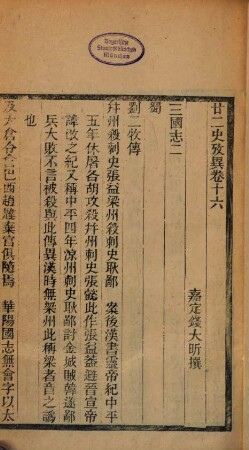 Bayerische
Staatsbibliothek
München
廿二史攷異卷十六
嘉定錢大昕撰
三國志二
蜀
劉二牧傳
幷州殺刺史張益梁州殺刺史耿鄙　案後漢書靈帝紀中平
五年休屠各胡攻殺幷州刺史張懿此作張益葢避晉宣帝
諱改之紀又稱中平四年涼州刺史耿鄙討金城賊韓遂鄙
兵大敗不言被殺與此傳異漢時無梁州此稱梁者音之譌
也
及太倉令會巴西趙韙棄官俱隨焉　華陽國志無會字以太